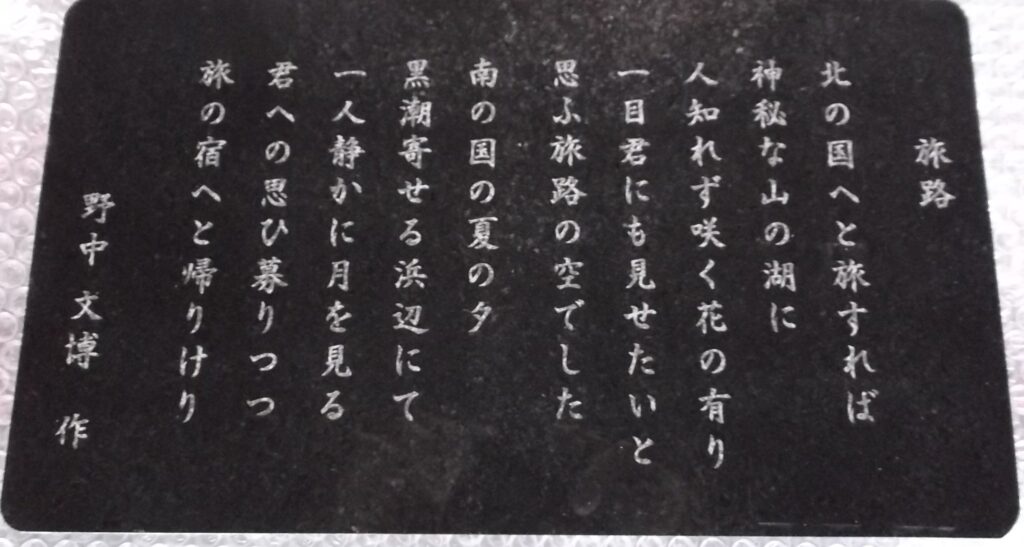 旅路
北の国へと旅すれば
神秘な山の湖に
人知れず咲く花の有り
一目君にも見せたいと
思ふ旅路の空でした
南の国の夏の夕
黒潮寄せる浜辺にて
一人静かに月を見る
君への思ひ募りつつ
旅の宿へと帰りけり
野中 文博 作